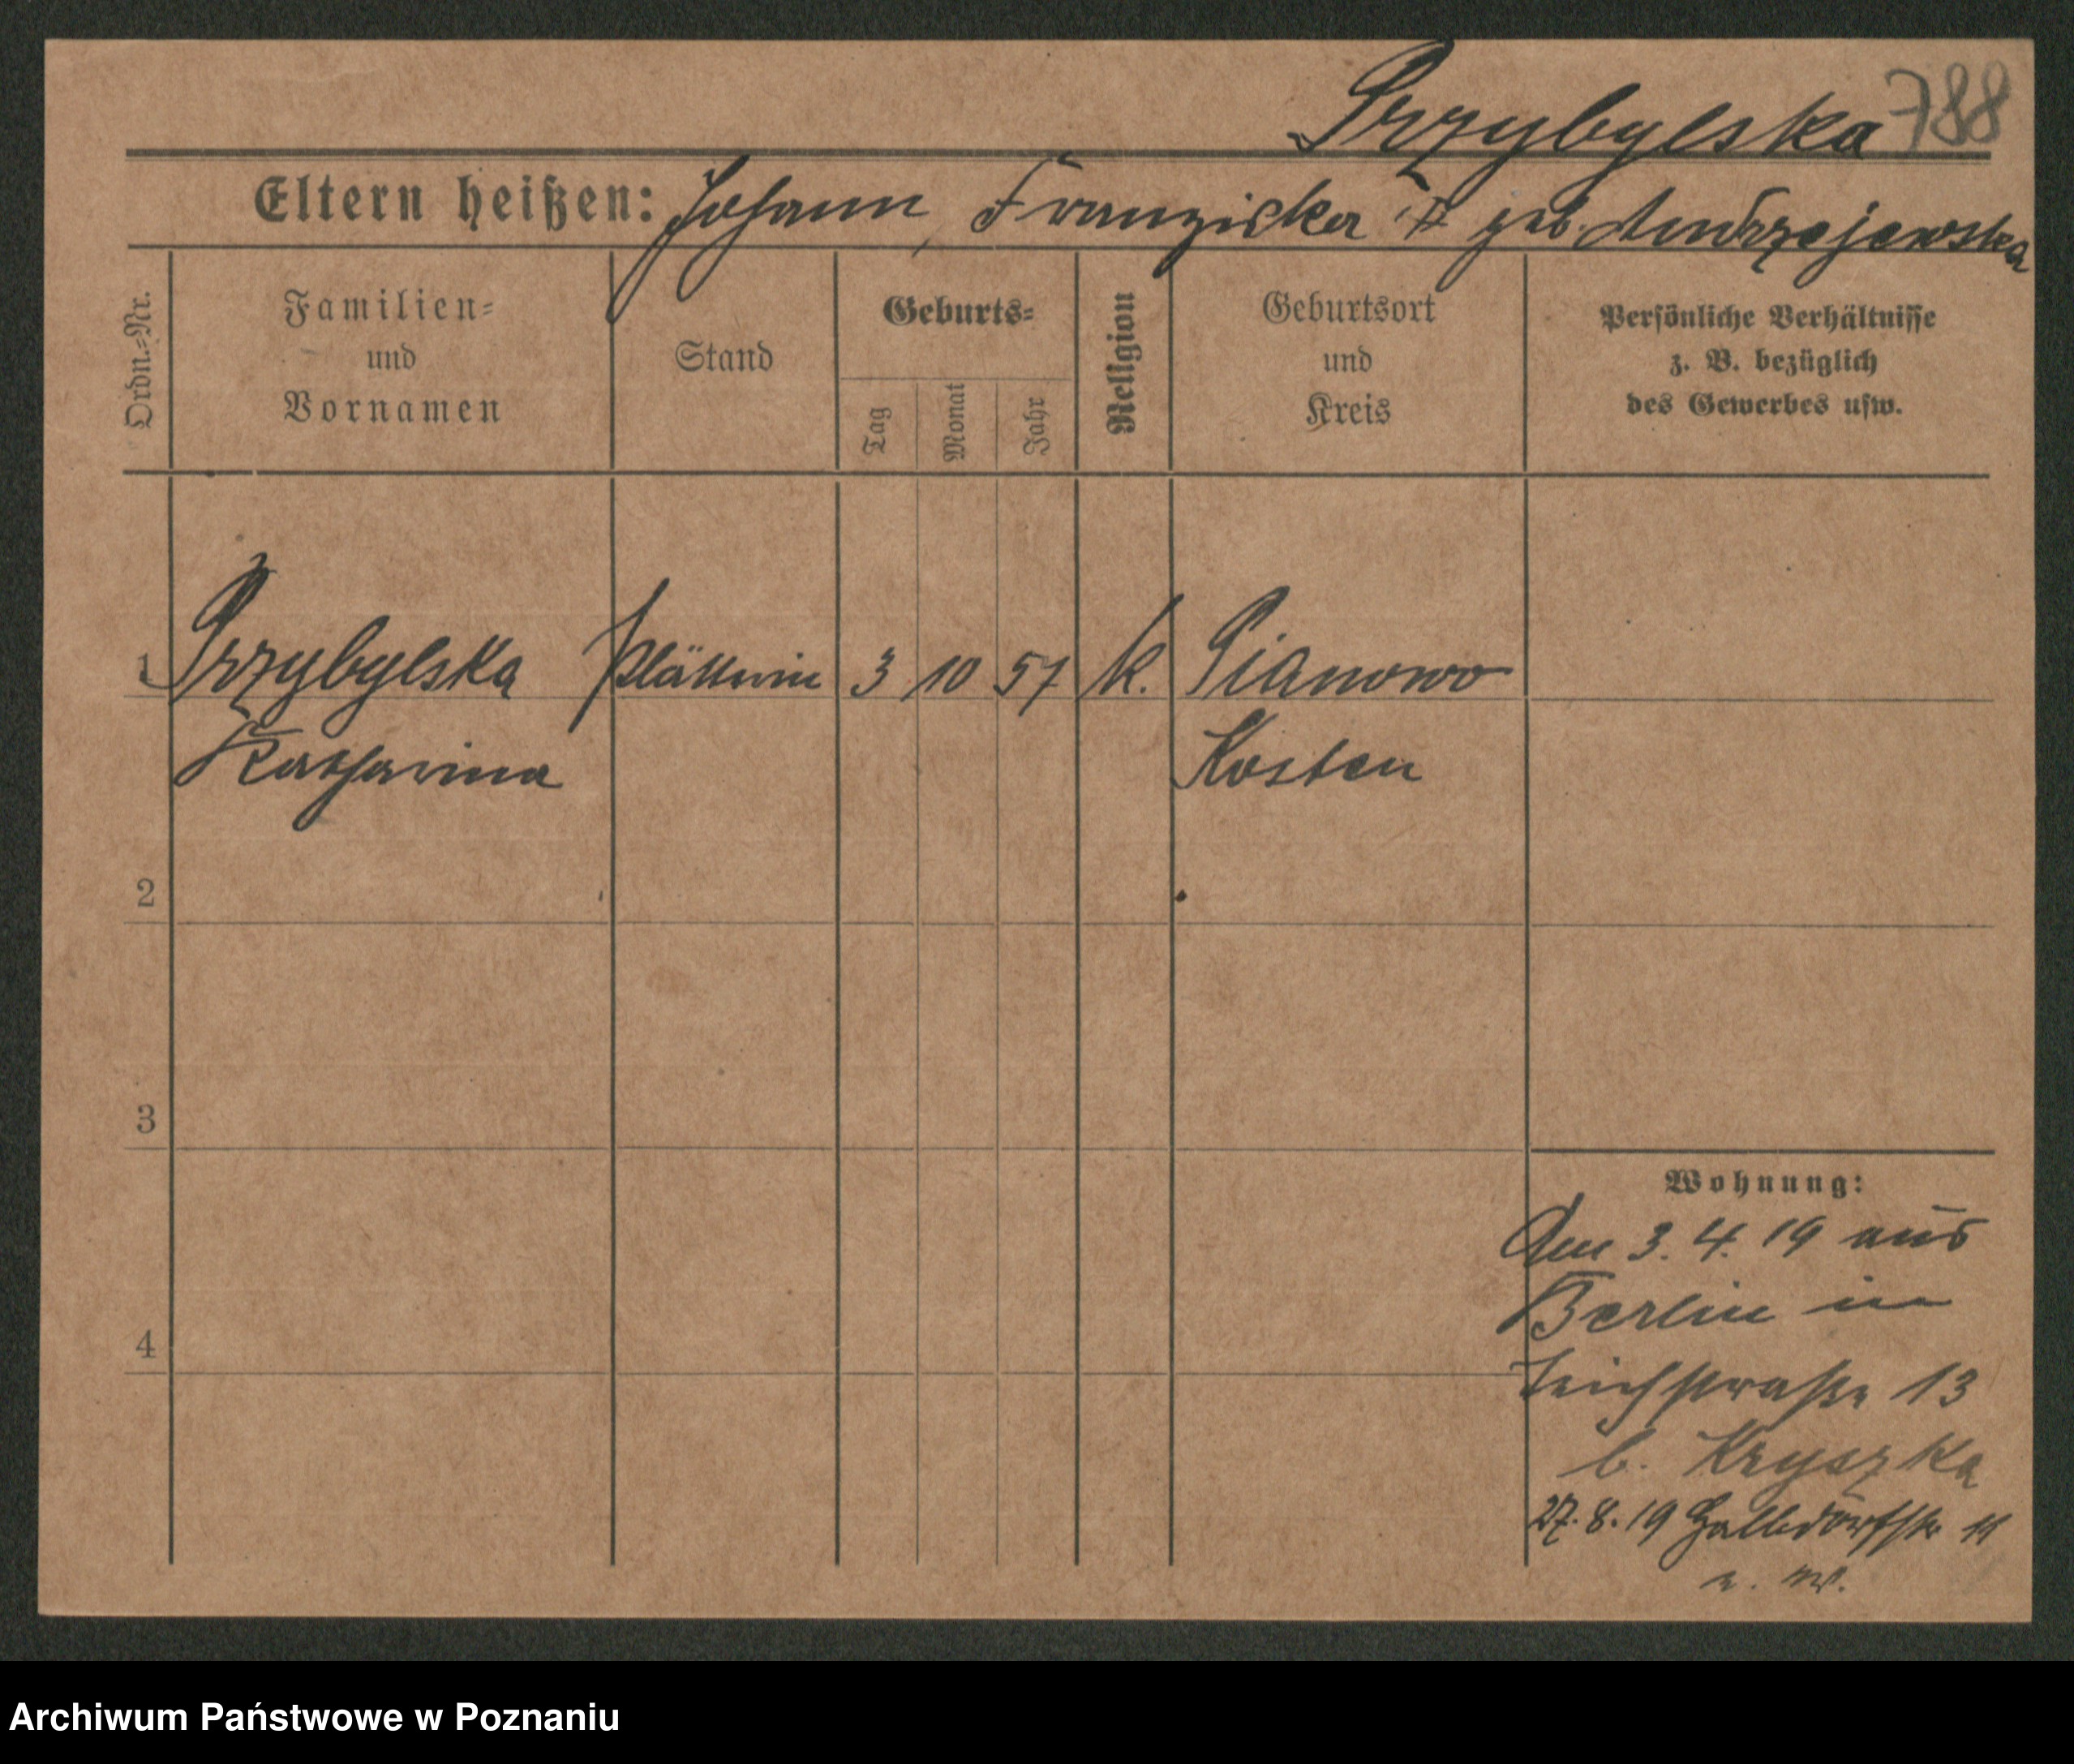 Przybylska 788
Eltern heißen: Johann, Franziska geb. Andrzejewska
Ordn.-Nr.
Familien-
und
Vornamen
Stand
Geburts-
Tag
Monat
Jahr
Religion
Geburtsort
und
Kreis
Persönliche Verhältnisse
z. B. bezüglich
des Gewerbes usw.
1 Przybylska Plätterin 3 10 57 k. Pianowo
Katharina Kosten
2
3
4
Wohnung:
Am 3. 4. 19 aus
Berlin in
Teichstraße 13
b. Kryszka
27. 8. 19 Halbdorfstr 11
Archiwum Państwowe w Poznaniu